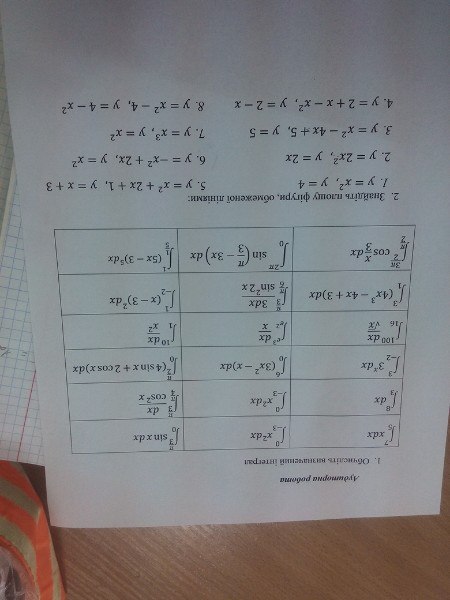 Аудиторна робота
1. Обчисліть визначений інтеграл
∫₅⁷ xdx  ∫₋₃⁰ x²dx  ∫₀^(π/3) sin x dx
∫₃⁸ dx  ∫₋₃⁰ x²dx  ∫_(π/4)^(π/3) dx/cos²x
∫₋₂³ 3ˣdx  ∫₀⁶ (3x² − x)dx  ∫₀^(π/2) (4 sin x + 2 cos x)dx
∫₁₆¹⁰⁰ dx/√x  dx/x  ∫₁¹⁰ dx/x²
∫₁³ (4x³ − 4x + 3)dx  ∫_(π/6)^(π/3) 3dx/sin²2x  ∫₋₂¹ (x − 3)²dx
cos x/3 dx  ∫₀^(2π) sin (π/3 − 3x) dx  (5x − 3)⁵dx
2. Знайдіть площу фігури, обмеженої лініями:
1. y = x², y = 4  5. y = x² + 2x + 1, y = x + 3
2. y = 2x², y = 2x  6. y = −x² + 2x, y = x²
3. y = x² − 4x + 5, y = 5  7. y = x³, y = x²
4. y = 2 + x − x², y = 2 − x  8. y = x² − 4, y = 4 − x²